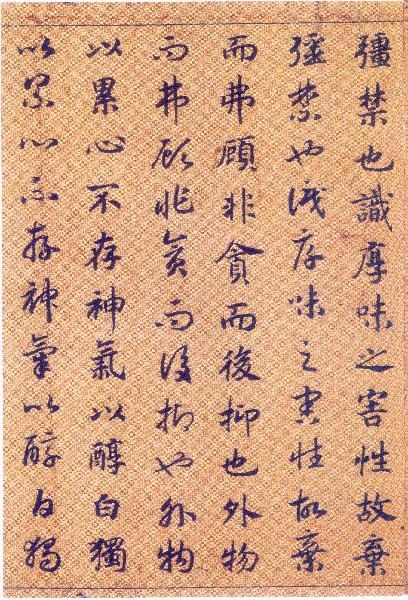 彊禁也識厚味之害性故棄
彊禁也識厚味之害性故棄
而弗顧非貪而後抑也外物
而弗顧非貪而後抑也外物
以累心不存神氣以醇白獨
以累心不存神氣以醇白獨